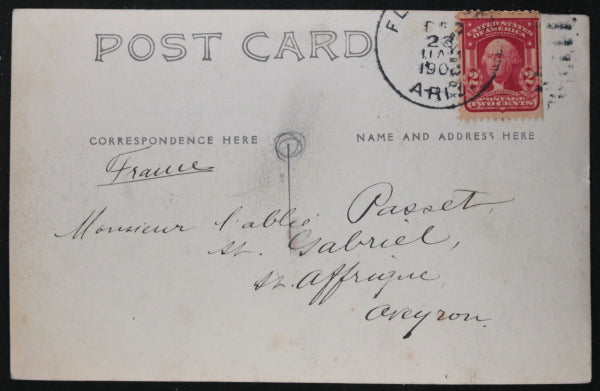 POST CARD
FL
DEC
190
ARIZ
UNITED STATES OF AMERICA
2 2
POSTAGE
TWO CENTS
CORRESPONDENCE HERE
NAME AND ADDRESS HERE
France
Monsieur l'abbé Passet,
St. Gabriel,
St. Affrique,
Aveyron.